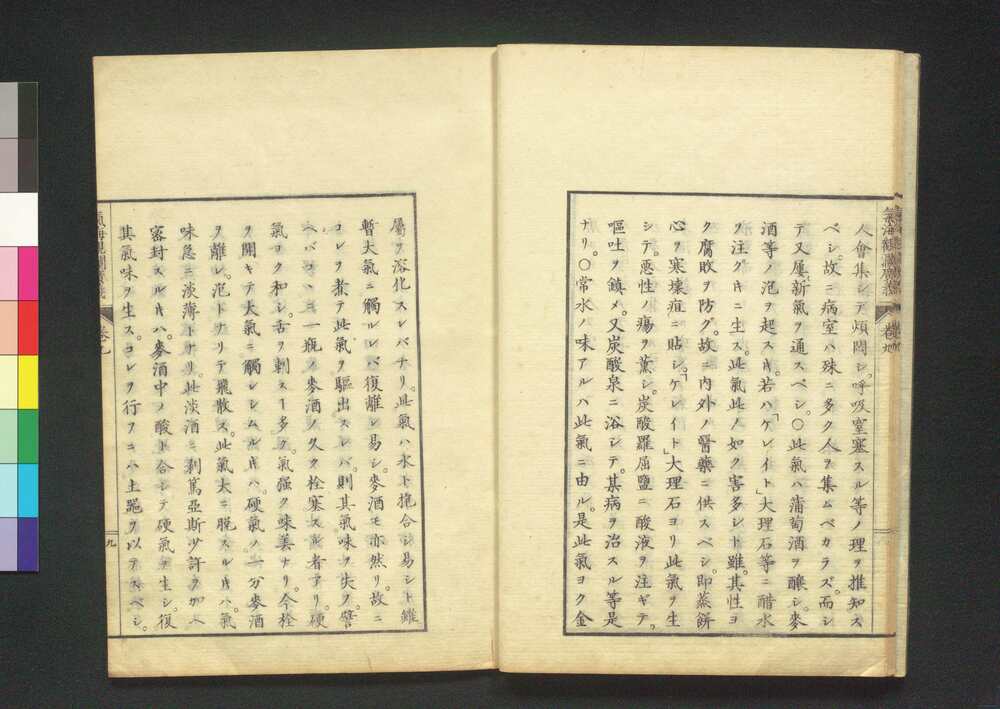 氣海觀瀾廣義
卷九
人會集シテ煩悶シ。呼吸窒塞スル等ノ理ヲ推知ス
ベシ。故ニ病室ハ殊ニ多ク人ヲ集ムベカラズ。而シ
テ又屢〻新氣ヲ通スベシ。○此氣ハ蒲萄酒ヲ醸シ。麥
酒等ノ泡ヲ起スキ。若ハ「ケレイト」大理石等ニ醋水
ヲ注グキニ生ス。此氣此ノ如ク害多シト雖。其性ヨ
ク腐敗ヲ防グ。故ニ內外ノ醫藥ニ供スベシ。卽蒸餅
心ヲ寒壊疽ニ貼シ。「ケレイト」大理石ヨリ此氣ヲ生
シテ。惡性ノ瘍ヲ薰シ。炭酸羅屈鹽ニ酸液ヲ注ギテ。
嘔吐ヲ鎮メ。又炭酸泉ニ浴シテ。某病ヲ治スル等是
ナリ。○常水ノ味アルハ此氣ニ由ル。是此氣ヨク金
屬ヲ溶化スレバナリ。此氣ハ水ト抱合シ易シト雖
暫大氣ニ觸ルレバ復離レ易シ。麥酒モ亦然リ。故ニ
コレヲ煮テ此氣ヲ驅出スレバ。則其氣味ヲ失フ。譬
ヘバコヽニ一瓶ノ麥酒ノ久ク栓塞スル者アリ。硬
氣ヨク和シ。舌ヲ刺スヿ多ク。氣强ク味美ナリ。今栓
ヲ開キテ大氣ニ觸レシムルキハ。硬氣ノ一分麥酒
ヲ離レ。泡トナリテ飛散ス。此氣大ニ脫スルキハ。氣
味急ニ淡薄トナリ。此淡酒ニ剝篤亞斯少許ヲ加ヘ
密封スルキハ。麥酒中ノ酸ト合シテ硬氣ヲ生シ。復
其氣味ヲ生ス。コレヲ行フニハ土罎ヲ以テスベシ。
卷九
九